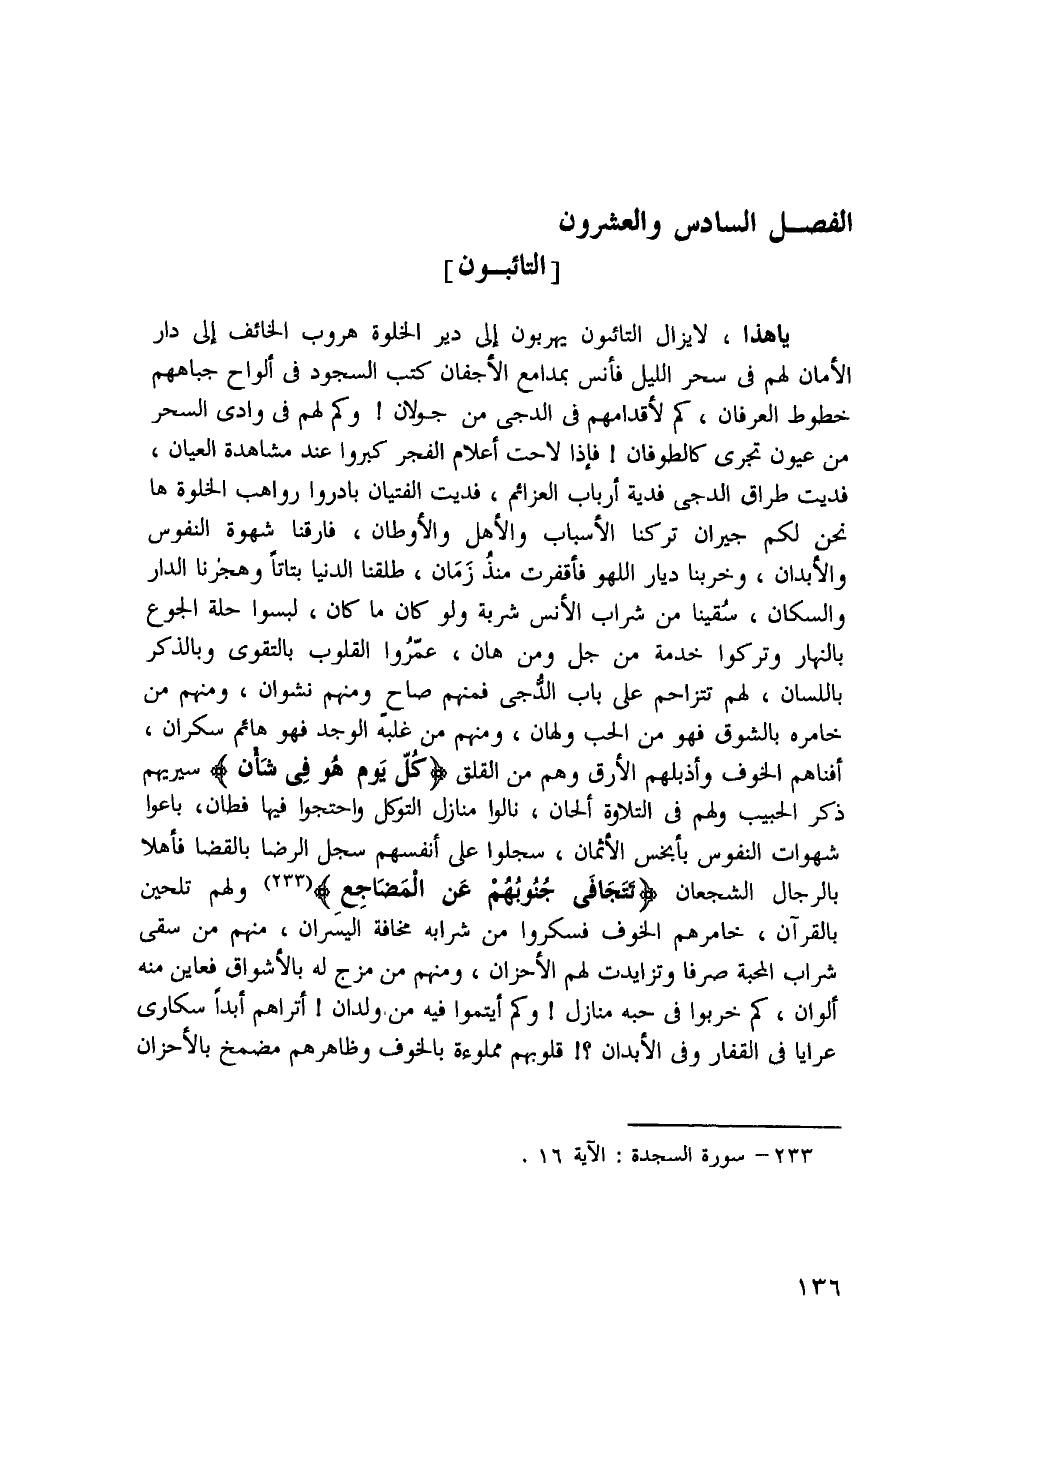 الفصل السادس والعشرون
[التائبون]
ياهذا ، لايزال التائبون يهربون إلى دير الخلوة هروب الخائف إلى دار
الأمان لهم فى سحر الليل فأنس بمدامع الأجفان كتب السجود فى ألواح جباههم
خطوط العرفان ، كم لأقدامهم فى الدجى من جولان ! وكم لهم فى وادى السحر
من عيون تجرى كالطوفان ! فإذا لاحت أعلام الفجر كبروا عند مشاهدة العيان ،
فديت طراق الدجى فدية أرباب العزائم ، فديت الفتيان بادروا رواهب الخلوة ها
نحن لكم جيران تركنا الأسباب والأهل والأوطان ، فارقنا شهوة النفوس
والأبدان ، وخربنا ديار اللهو فأقفرت منذُ زَمَان ، طلقنا الدنيا بتاتاً وهجرنا الدار
والسكان ، سُقينا من شراب الأنس شربة ولو كان ما كان ، لبسوا حلة الجوع
بالنهار وتركوا خدمة من جل ومن هان ، عمّرُوا القلوب بالتقوى وبالذكر
باللسان ، لهم تتزاحم على باب الدُّجى فمنهم صاحٍ ومنهم نشوان ، ومنهم من
خامره بالشوق فهو من الحب ولهان ، ومنهم من غلبه الوجد فهو هائم سكران ،
أفناهم الخوف وأذبلهم الأرق وهم من القلق ﴿كُلّ يَوم هُو فِى شَأْن ﴾ سيريهم
ذكر الحبيب ولهم فى التلاوة ألحان ، نالوا منازل التوكل واحتجوا فيها فطان، باعوا
شهوات النفوس بأبخس الأثمان ، سجلوا على أنفسهم سجل الرضا بالقضا فأهلا
بالرجال الشجعان ﴿تَتَجَافَى جُنُوبُهُمْ عَن الْمَضَاجِعِ ﴾(٢٣٣) ولهم تلحين
بالقرآن ، خامرهم الخوف فسكروا من شرابه مخافة اليسران ، منهم من سقى
شراب المحبة صرفا وتزايدت لهم الأحزان ، ومنهم من مزج له بالأشواق فعاين منه
ألوان ، كم خربوا فى حبه منازل ! وكم أيتموا فيه من ولدان ! أتراهم أبداً سكارى
عرايا فى القفار وفى الأبدان ؟! قلوبهم مملوءة بالخوف وظاهرهم مضمخ بالأحزان
٢٣٣ – سورة السجدة : الآية ١٦ .
١٣٦